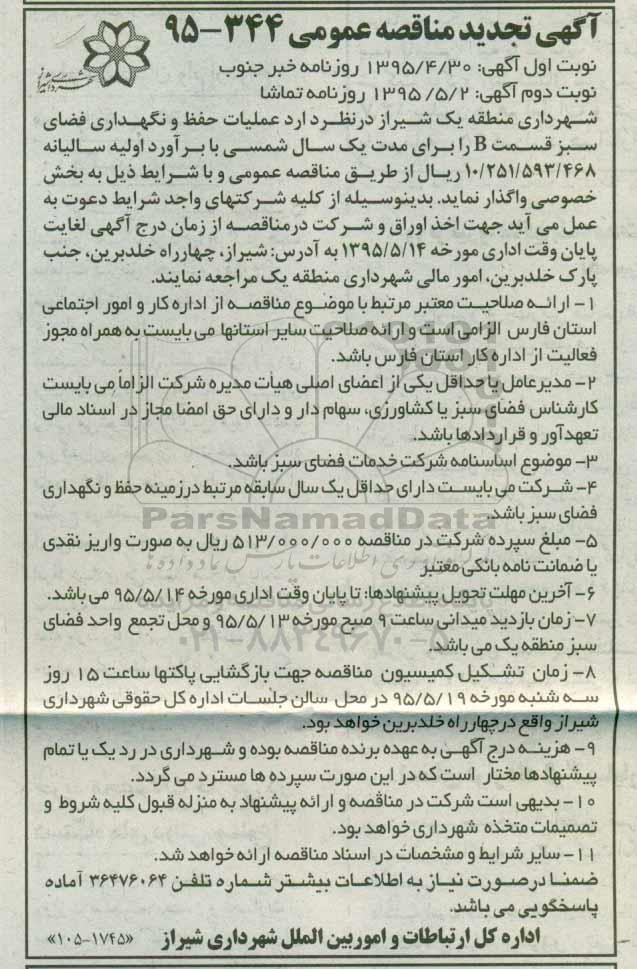 آگهی تجدید مناقصه عمومی ۳۴۴-۹۵
شهرداری شیراز
نوبت اول آگهی: ۱۳۹۵/۴/۳۰ روزنامه خبر جنوب
نوبت دوم آگهی: ۱۳۹۵/۵/۲ روزنامه تماشا
شهرداری منطقه یک شیراز درنظرد ارد عملیات حفظ و نگهداری فضای
سبز قسمت B را برای مدت یک سال شمسی با برآورد اولیه سالیانه
۱۰/۲۵۱/۵۹۳/۴۶۸ ریال از طریق مناقصه عمومی و با شرایط ذیل به بخش
خصوصی واگذار نماید. بدینوسیله از کلیه شرکتهای واجد شرایط دعوت به
عمل می آید جهت اخذ اوراق و شرکت درمناقصه از زمان درج آگهی لغایت
پایان وقت اداری مورخه ۱۳۹۵/۵/۱۴ به آدرس: شیراز، چهارراه خلدبرین، جنب
پارک خلدبرین، امور مالی شهرداری منطقه یک مراجعه نمایند.
۱- ارائه صلاحیت معتبر مرتبط با موضوع مناقصه از اداره کار و امور اجتماعی
استان فارس الزامی است و ارائه صلاحیت سایر استانها می بایست به همراه مجوز
فعالیت از اداره کار استان فارس باشد.
۲- مدیرعامل یا حداقل یکی از اعضای اصلی هیأت مدیره شرکت الزاماً می بایست
کارشناس فضای سبز یا کشاورزی، سهام دار و دارای حق امضا مجاز در اسناد مالی
تعهدآور و قراردادها باشد.
۳- موضوع اساسنامه شرکت خدمات فضای سبز باشد.
۴- شرکت می بایست دارای حداقل یک سال سابقه مرتبط درزمینه حفظ و نگهداری
فضای سبز باشد.
ParsNamadData
۵- مبلغ سپرده شرکت در مناقصه ۵۱۳/۰۰۰/۰۰۰ ریال به صورت واریز نقدی
یا ضمانت نامه بانکی معتبر
۶- آخرین مهلت تحویل پیشنهادها: تا پایان وقت اداری مورخه ۹۵/۵/۱۴ می باشد.
۷- زمان بازدید میدانی ساعت ۹ صبح مورخه ۹۵/۵/۱۳ و محل تجمع واحد فضای
سبز منطقه یک می باشد.
۰۲۱-۸۸۳۴۹۶۷۰-۵
۸- زمان تشکیل کمیسیون مناقصه جهت بازگشایی پاکتها ساعت ۱۵ روز
سه شنبه مورخه ۹۵/۵/۱۹ در محل سالن جلسات اداره کل حقوقی شهرداری
شیراز واقع درچهارراه خلدبرین خواهد بود.
۹- هزینه درج آگهی به عهده برنده مناقصه بوده و شهرداری در رد یک یا تمام
پیشنهادها مختار است که در این صورت سپرده ها مسترد می گردد.
۱۰- بدیهی است شرکت در مناقصه و ارائه پیشنهاد به منزله قبول کلیه شروط و
تصمیمات متخذه شهرداری خواهد بود.
۱۱- سایر شرایط و مشخصات در اسناد مناقصه ارائه خواهد شد.
ضمنا درصورت نیاز به اطلاعات بیشتر شماره تلفن ۳۶۴۷۶۰۶۴ آماده
پاسخگویی می باشد.
اداره کل ارتباطات و اموربین الملل شهرداری شیراز «۱۰۵-۱۷۴۵»